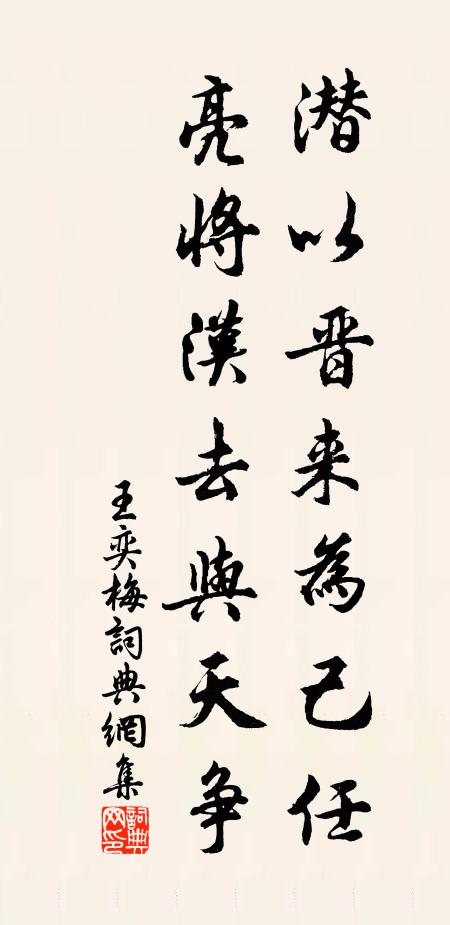 潜以晋来為己任
亮将漢去與天争
王奕梅詞典網集
詞典网印